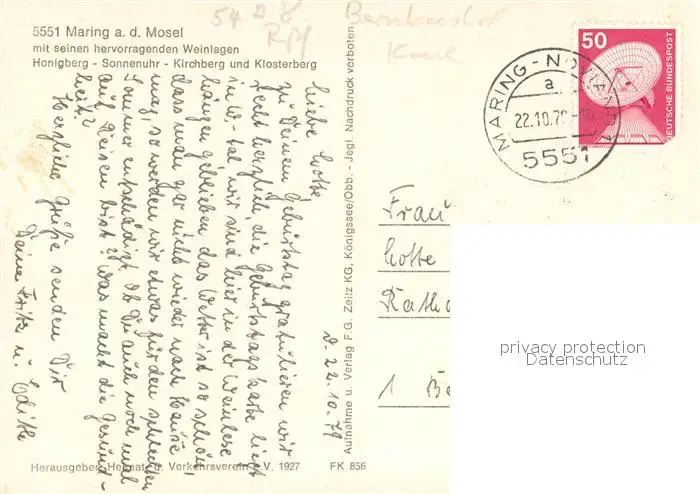 5551 Maring a. d. Mosel
mit seinen hervorragenden Weinlagen
Honigberg - Sonnenuhr - Kirchberg und Klosterberg
54 8
Bernkastel
d. 22.10.79
Liebe Lotte
zu Deinem Geburtstag gratulieren wir
recht herzlich, die Geburtstagskarte liegt
in W-tal wir sind hier in der Weinlese
hängen geblieben das Wetter ist so schön,
dass man gar nicht wieder nach Hause
mag, so werden wir etwas für den schlechten
Sommer entschädigt. Ob Du auch noch mal
auf Reisen bist? Was macht die Gesund-
heit?
Herzliche Grüße senden Dir
Deine Fritz u. Edith
Herausgeber: Heimat- u. Verkehrsverein e.V. 1927
FK 856
Aufnahme u. Verlag F.G. Zeitz KG, Königssee/Obb. - Jegl. Nachdruck verboten
50
DEUTSCHE BUNDESPOST
MARING-NOVIAND 1
a
22.10.79
5551
Frau
Lotte
1 Be
privacy protection
Datenschutz